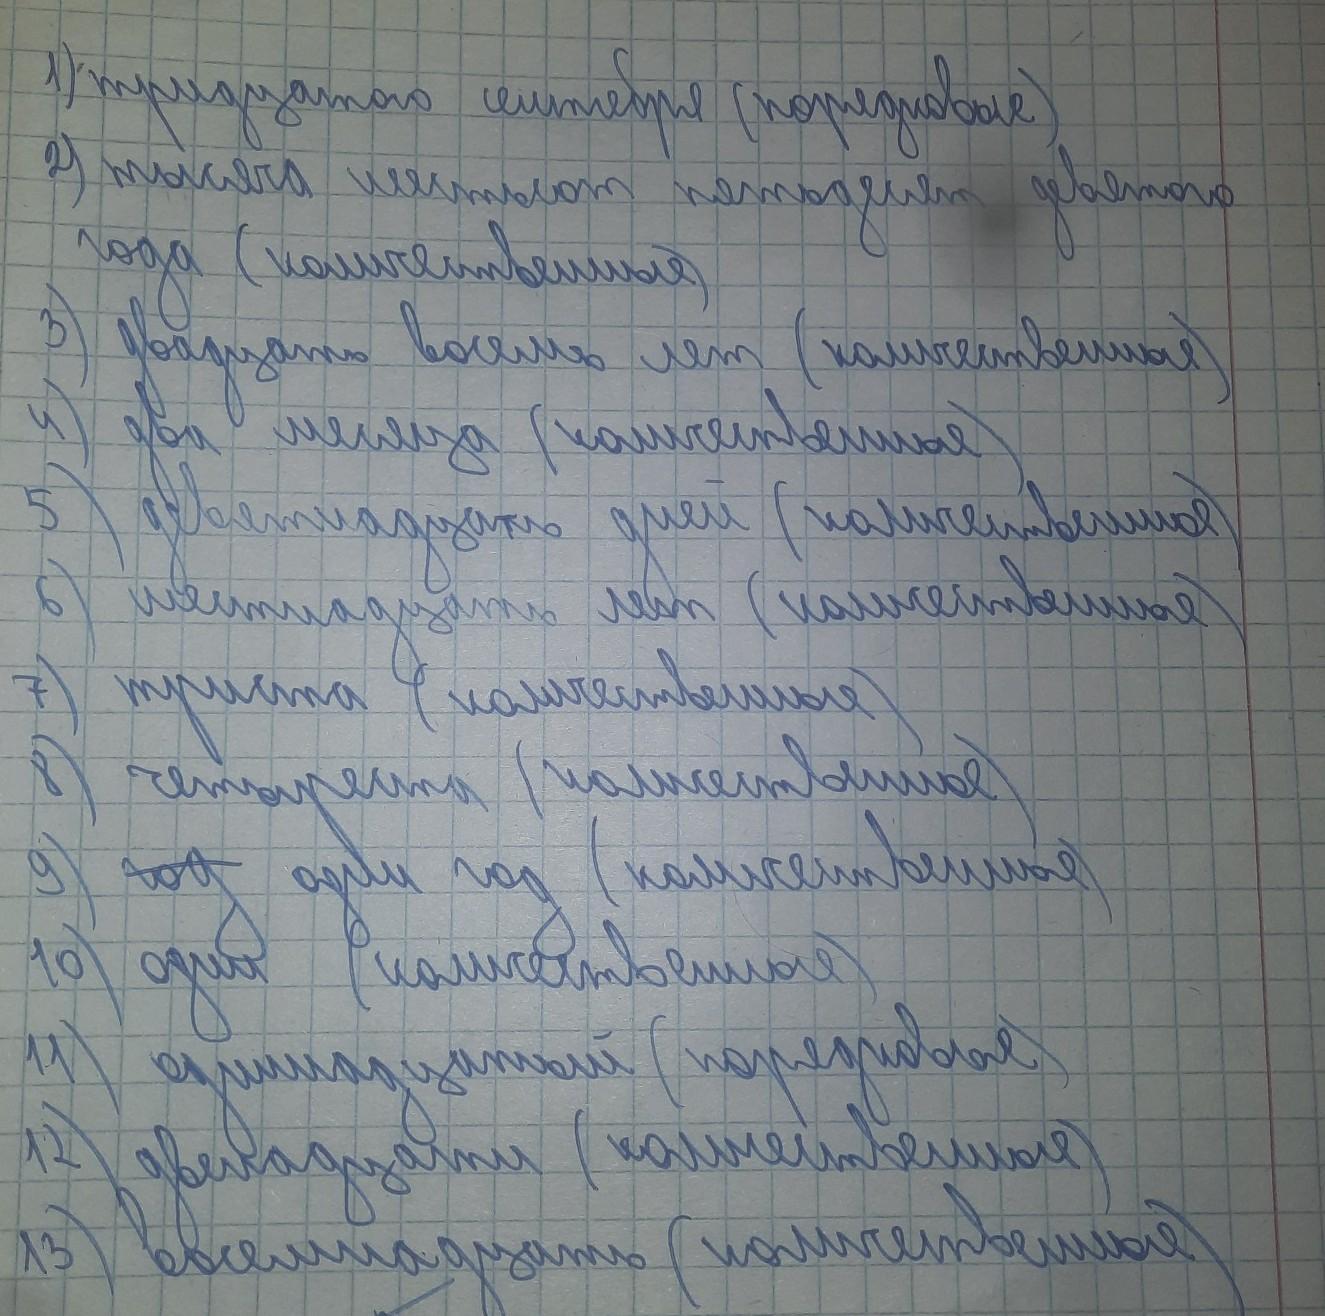 1) тридцатого сентября (порядковые)
2) тысяча шестьсот пятьдесят девятого
года (количественная)
3) двадцать восемь лет (количественная)
4) два месяца (количественная)
5) девятнадцать дней (количественная)
6) шестнадцать лет (количественная)
7) триста (количественная)
8) четыреста (количественная)
9) год один год (количественная)
10) один (количественная)
11) одиннадцатый (порядковая)
12) двенадцати (количественная)
13) восемнадцать (количественная)